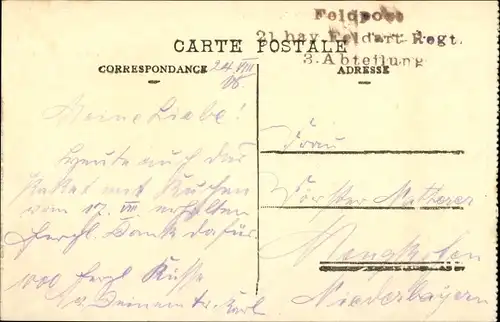 Feldpost
21. bay. Feldart. Regt.
3. Abteilung
CARTE POSTALE
CORRESPONDANCE
ADRESSE
24 VIII
Meine Liebe!
Heute auch das
Paket mit Kuchen
vom 17. VIII. erhalten
herzl. Dank dafür
1000 herzl. Küsse
Deinem tr. Karl
Frau
Förster
Mengkofen
Niederbayern